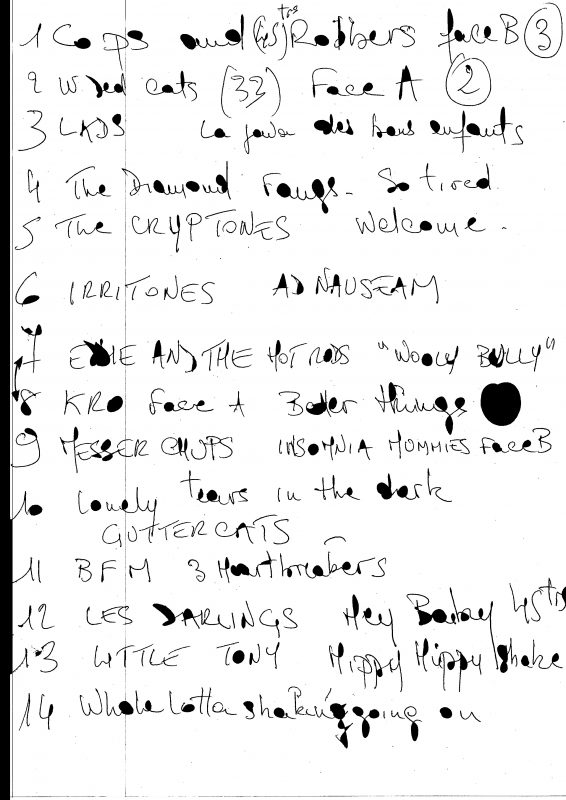 1 Cops and (45 trs) Robbers face B 3
2 Wild cats (33) Face A 2
3 LADS La des bons enfants
4 The Diamond Fangs - So tired
5 The CRYPTONES Welcome.
6 IRRITONES AD NAUSEAM
7 EDDIE AND THE HOT RODS "WOOLY BULLY"
8 KRO face A Better things
9 MESSER CHUPS INSOMNIA MOMMIES FaceB
10 Lonely tears in the dark
GUTTERCATS
11 BFM 3 Heartbreakers
12 LES DARLINGS Hey Babay 45 trs
13 LITTLE TONY Hippy Hippy shake
14 Whole lotta shaking going on